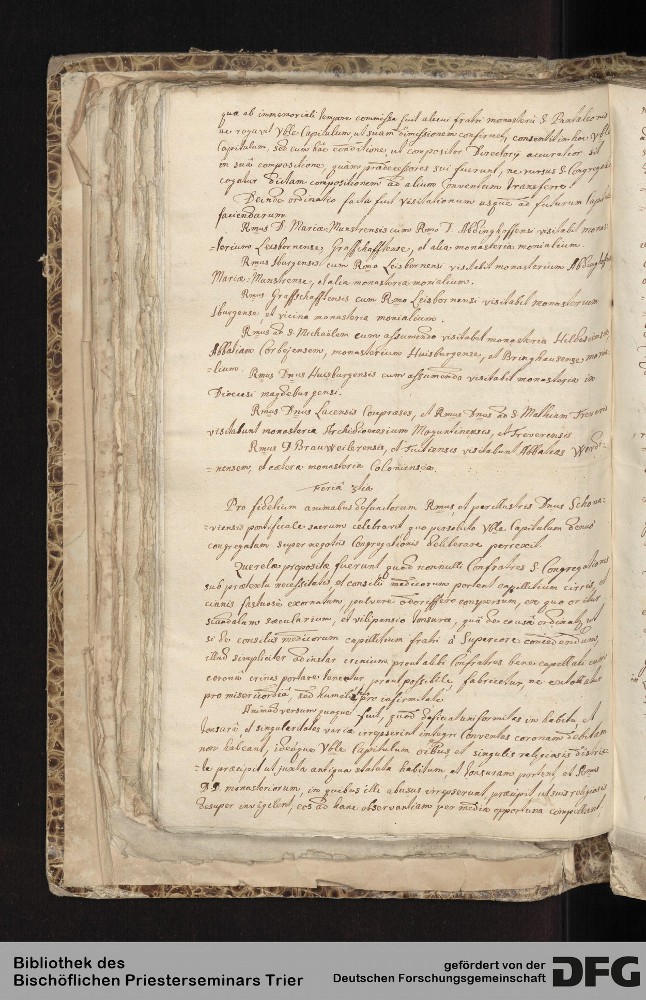 quæ ab immemoriali tempore commissa fuit alicui fratri monasterii S. Pantaleonis
ac rogavit Vble Capitulum, ut suam dimissionem confirmet, consentit in hoc Vble
Capitulum, sed cum hac conditione, ut compositor Directorij accuratior sit
in sua compositione, quam prædecessores sui fuerunt, ne rursus S. Congregatio
cogatur dictam compositionem ad alium Conventum transferre.
Deinde ordinatio facta fuit visitationum usque ad futurum Capitulum
faciendarum
Rmus D. Mariæ-Munstrensis cum Rmo D. Abdinghoffensi visitabit monas-
-terium Leisbornense, Graffschafftense, et alia monasteria monialium.
Rmus Iburgensis cum Rmo Leisbornensi visitabit monasterium Abdinghoffense
Mariæ-Munstrense, et alia monasteria monialium.
Rmus Graffschafftensis cum Rmo Leisbornensi visitabit monasterium
Iburgense, et vicina monasteria monialium.
Rmus ad S. Michaëlem cum assumendo visitabit monasteria Hildesiensia
Abbatiam Corbejensem, monasterium Huisburgense, et Bringhausense, monia-
-lium.
Rmus Dnus Huisburgensis cum assumendo visitabit monasteria in
Diœcesi magdeburgensi.
Rmus Dnus Lacensis Compræses, et Rmus Dnus ad S. Mathiam Treveris
visitabunt monasteria Archidiœcesium Moguntinensis, et Treverensis
Rmus D. Brauweilerensis, et Tuitiensis visitabunt Abbatias Werdi-
-nensem, et cætera monasteria Coloniensia.
Feria 3tia
Pro fidelium animabus defunctorum Rmus, et perillustris Dnus Schona-
-viensis pontificale sacrum celebravit quo persoluto Vble Capitulum denuo
congregatum super negotiis Congregationis deliberare perrexit.
Querelæ propositæ fuerunt quod nonnulli Confratres S. Congregationis
sub prætextu necessitatis et consilii medicorum portent capillitium cirris, et
cinnis fastuose exornatum, pulvere odorifero conspersum, ex quo oritur
scandalum sæcularium, et vilipensio tonsuræ, qua de causa ordinatum, ut
si de consiliis medicorum capillitium fratri à Superiore concedendum,
illud simpliciter ad instar crinium, prout alibi Confratres bene capillati cum
corona crines portare tenentur, prout possibile fabricetur, ne
pro misericordia, sed humilit pro infirmitate
Animadversum quoque fuit, quod deficiat uniformitas in habitu, et
tonsura, et singularitates variæ irrepserint integri Conventus coronam debitam
non habeant, ideoque Vble Capitulum oribus et singulis religiosis distric-
-te præcipit ut juxta antiqua statuta habitum et tonsuram portent, et Rmis
DD. monasteriorum, in quibus ille abusus irrepserunt, præcipit ut suis religiosis
desuper invigilent, eos ad hanc observantiam per media opportuna compellant
Bibliothek des
Bischöflichen Priesterseminars Trier
gefördert von der
Deutschen Forschungsgemeinschaft
DFG